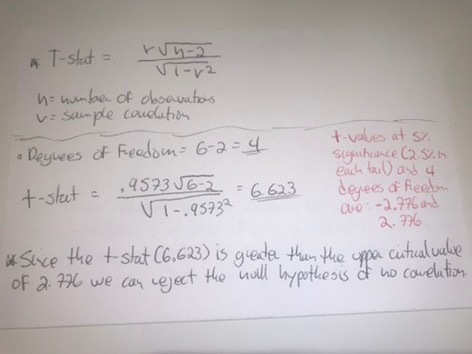 * T-stat = r√n-2 / √1-r²
n = number of observations
r = sample correlation
• Degrees of Freedom = 6-2 = 4
t-stat = .9573√6-2 / √1-.9573² = 6.623
t-values at 5%
significance (2.5% in
each tail) and 4
degrees of freedom
are: -2.776 and
2.776
* Since the t-stat (6.623) is greater than the upper critical value
of 2.776 we can reject the null hypothesis of no correlation